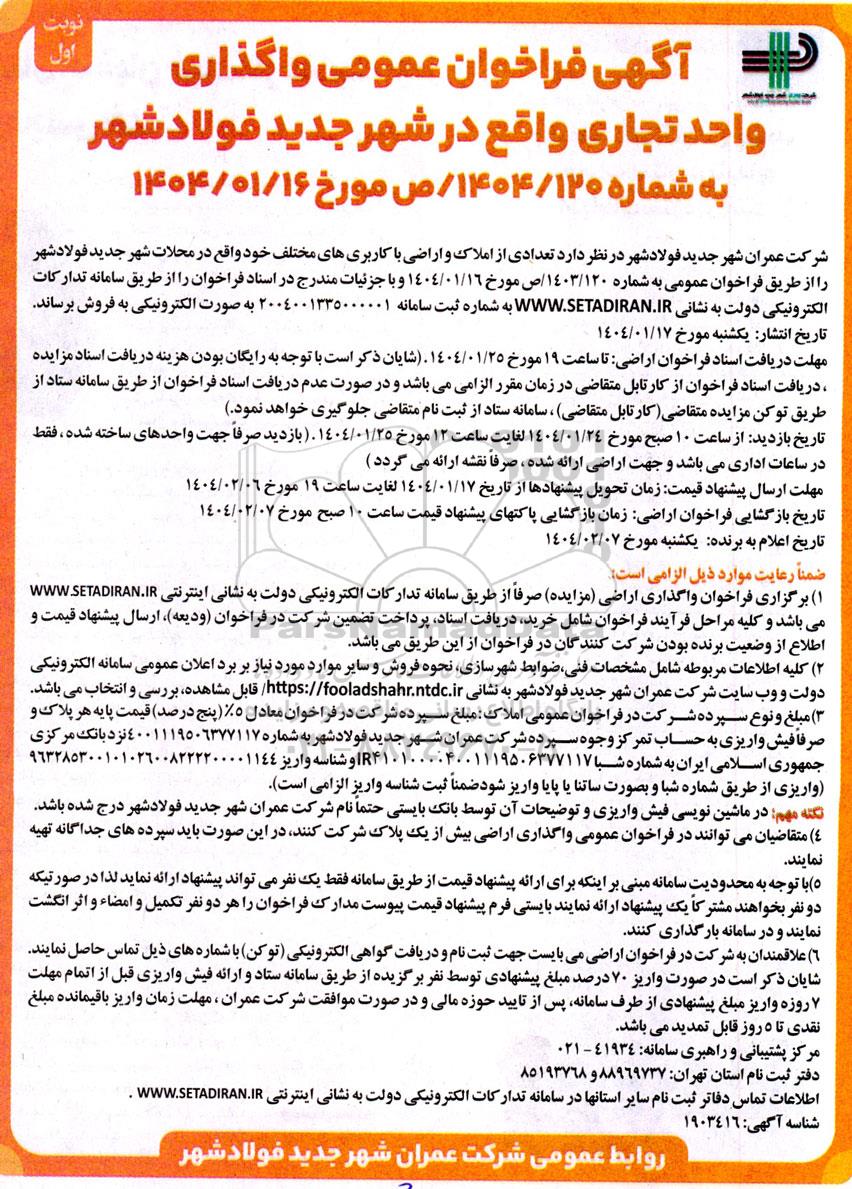 نوبت
اول
آگهی فراخوان عمومی واگذاری
واحد تجاری واقع در شهر جدید فولادشهر
به شماره ۱۴۰۴/۱۲۰/ص مورخ ۱۴۰۴/۰۱/۱۶
شرکت عمران شهر جدید فولادشهر در نظر دارد تعدادی از املاک و اراضی با کاربری های مختلف خود واقع در محلات شهر جدید فولادشهر
را از طریق فراخوان عمومی به شماره ۱۴۰۳/۱۲۰/ص مورخ ۱۴۰۴/۰۱/۱۶ و با جزئیات مندرج در اسناد فراخوان را از طریق سامانه تدارکات
الکترونیکی دولت به نشانی WWW.SETADIRAN.IR به شماره ثبت سامانه ۲۰۰۴۰۰۱۳۳۵۰۰۰۰۰۱ به صورت الکترونیکی به فروش برساند.
تاریخ انتشار: یکشنبه مورخ ۱۴۰۴/۰۱/۱۷
مهلت دریافت اسناد فراخوان اراضی: تا ساعت ۱۹ مورخ ۱۴۰۴/۰۱/۲۵. (شایان ذکر است با توجه به رایگان بودن هزینه دریافت اسناد مزایده
، دریافت اسناد فراخوان از کارتابل متقاضی در زمان مقرر الزامی می باشد و در صورت عدم دریافت اسناد فراخوان از طریق سامانه ستاد از
طریق توکن مزایده متقاضی(کارتابل متقاضی) ، سامانه ستاد از ثبت نام متقاضی جلوگیری خواهد نمود.)
تاریخ بازدید: از ساعت ۱۰ صبح مورخ ۱۴۰۴/۰۱/۲۴ لغایت ساعت ۱۲ مورخ ۱۴۰۴/۰۱/۲۵. ( بازدید صرفاً جهت واحدهای ساخته شده ، فقط
در ساعات اداری می باشد و جهت اراضی ارائه شده ، صرفا نقشه ارائه می گردد )
مهلت ارسال پیشنهاد قیمت: زمان تحویل پیشنهادها از تاریخ ۱۴۰۴/۰۱/۱۷ لغایت ساعت ۱۹ مورخ ۱۴۰۴/۰۲/۰۶
تاریخ بازگشایی فراخوان اراضی: زمان بازگشایی پاکتهای پیشنهاد قیمت ساعت ۱۰ صبح مورخ ۱۴۰۴/۰۲/۰۷
تاریخ اعلام به برنده: یکشنبه مورخ ۱۴۰۴/۰۲/۰۷
ضمناً رعایت موارد ذیل الزامی است:
۱) برگزاری فراخوان واگذاری اراضی (مزایده) صرفاً از طریق سامانه تدارکات الکترونیکی دولت به نشانی اینترنتی WWW.SETADIRAN.IR
می باشد و کلیه مراحل فرآیند فراخوان شامل خرید، دریافت اسناد، پرداخت تضمین شرکت در فراخوان (ودیعه)، ارسال پیشنهاد قیمت و
اطلاع از وضعیت برنده بودن شرکت کنندگان در فراخوان از این طریق می باشد.
۲) کلیه اطلاعات مربوطه شامل مشخصات فنی،ضوابط شهرسازی، نحوه فروش و سایر موارد مورد نیاز بر برد اعلان عمومی سامانه الکترونیکی
دولت و وب سایت شرکت عمران شهر جدید فولادشهر به نشانی https://fooladshahr.ntdc.ir/ قابل مشاهده، بررسی و انتخاب می باشد.
۳)مبلغ و نوع سپرده شرکت در فراخوان عمومی املاک : مبلغ سپرده شرکت در فراخوان معادل ۵٪ (پنج درصد) قیمت پایه هر پلاک و
صرفا فیش واریزی به حساب تمرکز وجوه سپرده شرکت عمران شهر جدید فولادشهر به شماره ۴۰۰۱۱۱۹۵۰۶۳۷۷۱۱۷ نزد بانک مرکزی
جمهوری اسلامی ایران به شماره شبا
(واریزی از طریق شماره شبا و بصورت ساتنا یا پایا واریز شود ضمناً ثبت شناسه واریز الزامی است).
نکته مهم: در ماشین نویسی فیش واریزی و توضیحات آن توسط بانک بایستی حتماً نام شرکت عمران شهر جدید فولادشهر درج شده باشد.
۴) متقاضیان می توانند در فراخوان عمومی واگذاری اراضی بیش از یک پلاک شرکت کنند، در این صورت باید سپرده های جداگانه تهیه
نمایند.
۵)با توجه به محدودیت سامانه مبنی بر اینکه برای ارائه پیشنهاد قیمت از طریق سامانه فقط یک نفر می تواند پیشنهاد ارائه نماید لذا در صورتیکه
دو نفر بخواهند مشترکاً یک پیشنهاد ارائه نمایند بایستی فرم پیشنهاد قیمت پیوست مدارک فراخوان را هر دو نفر تکمیل و امضاء و اثر انگشت
نمایند و در سامانه بارگذاری کنند.
۶) علاقمندان به شرکت در فراخوان اراضی می بایست جهت ثبت نام و دریافت گواهی الکترونیکی (توکن) با شماره های ذیل تماس حاصل نمایند.
شایان ذکر است در صورت واریز ۷۰ درصد مبلغ پیشنهادی توسط نفر برگزیده از طریق سامانه ستاد و ارائه فیش واریزی قبل از اتمام مهلت
۷ روزه واریز مبلغ پیشنهادی از طرف سامانه، پس از تایید حوزه مالی و در صورت موافقت شرکت عمران ، مهلت زمان واریز باقیمانده مبلغ
نقدی تا ۵ روز قابل تمدید می باشد.
مرکز پشتیبانی و راهبری سامانه: ۴۱۹۳۴ - ۰۲۱
دفتر ثبت نام استان تهران: ۸۸۹۶۹۷۳۷ و ۸۵۱۹۳۷۶۸
اطلاعات تماس دفاتر ثبت نام سایر استانها در سامانه تدارکات الکترونیکی دولت به نشانی اینترنتی WWW.SETADIRAN.IR .
شناسه آگهی: ۱۹۰۳۴۱۶
روابط عمومی شرکت عمران شهر جدید فولادشهر